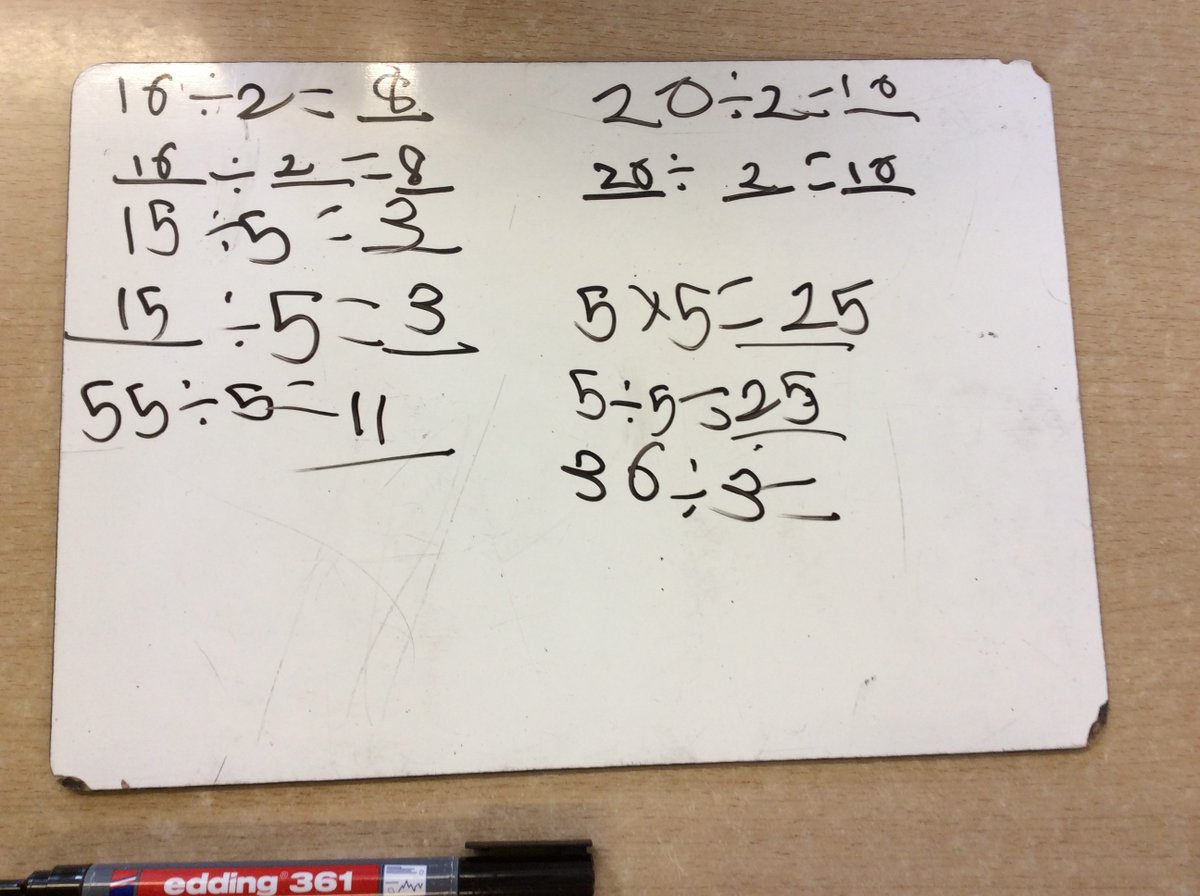 16÷2= 8
16 ÷ 2 =8
15 ÷5 = 3
15 ÷5=3
55÷5= 11
20÷2=10
20÷ 2 =10
5×5= 25
5÷5=25
36÷3=
edding 361